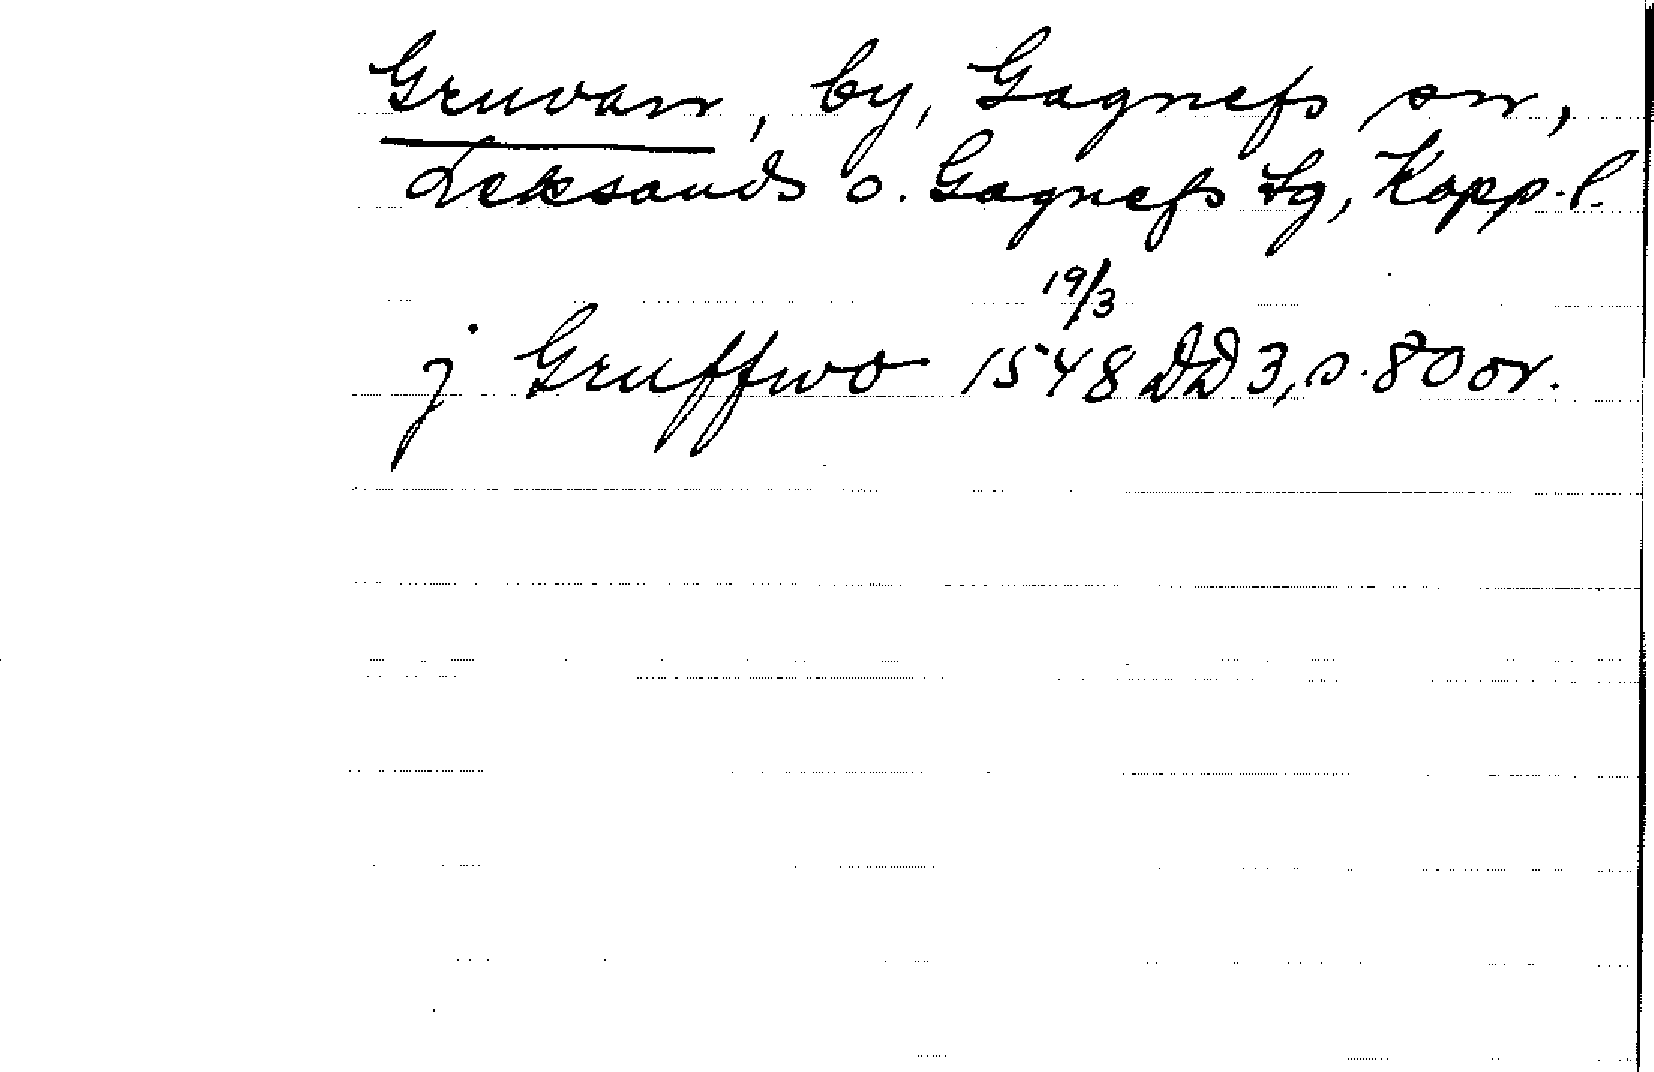 Gruvan, by, Gagnefs sn,
Leksands o. Gagnefs tg, Kopp. l.
19/3
j Gruffwo 1548 DD 3, s. 80 or.